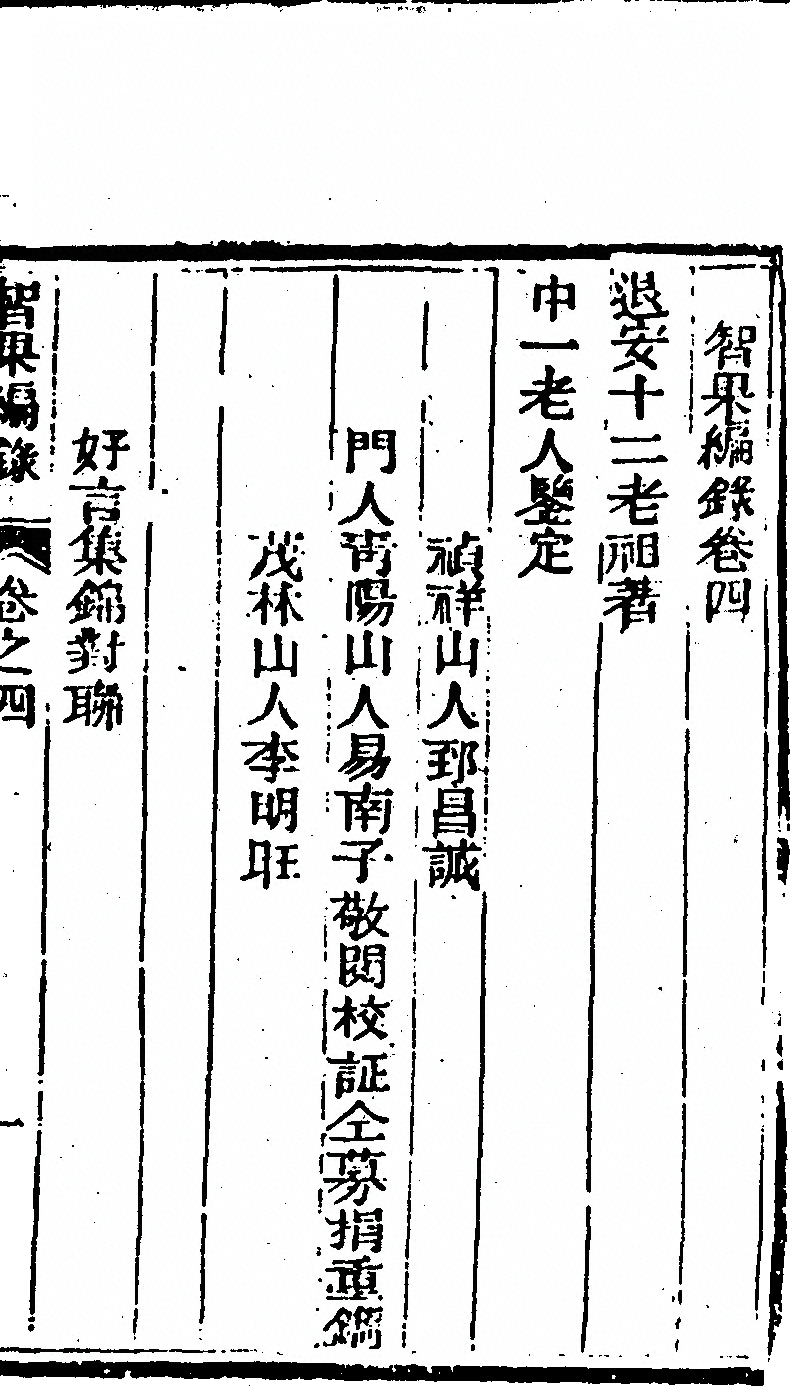 智果編錄卷四
退安十二老祖著
中一老人鑒定
禎祥山人郅昌誠
門人靑陽山人易南子敬閱校証仝募捐重鐫
茂林山人李明旺
好言集錦對聯
智果編錄 卷之四 一